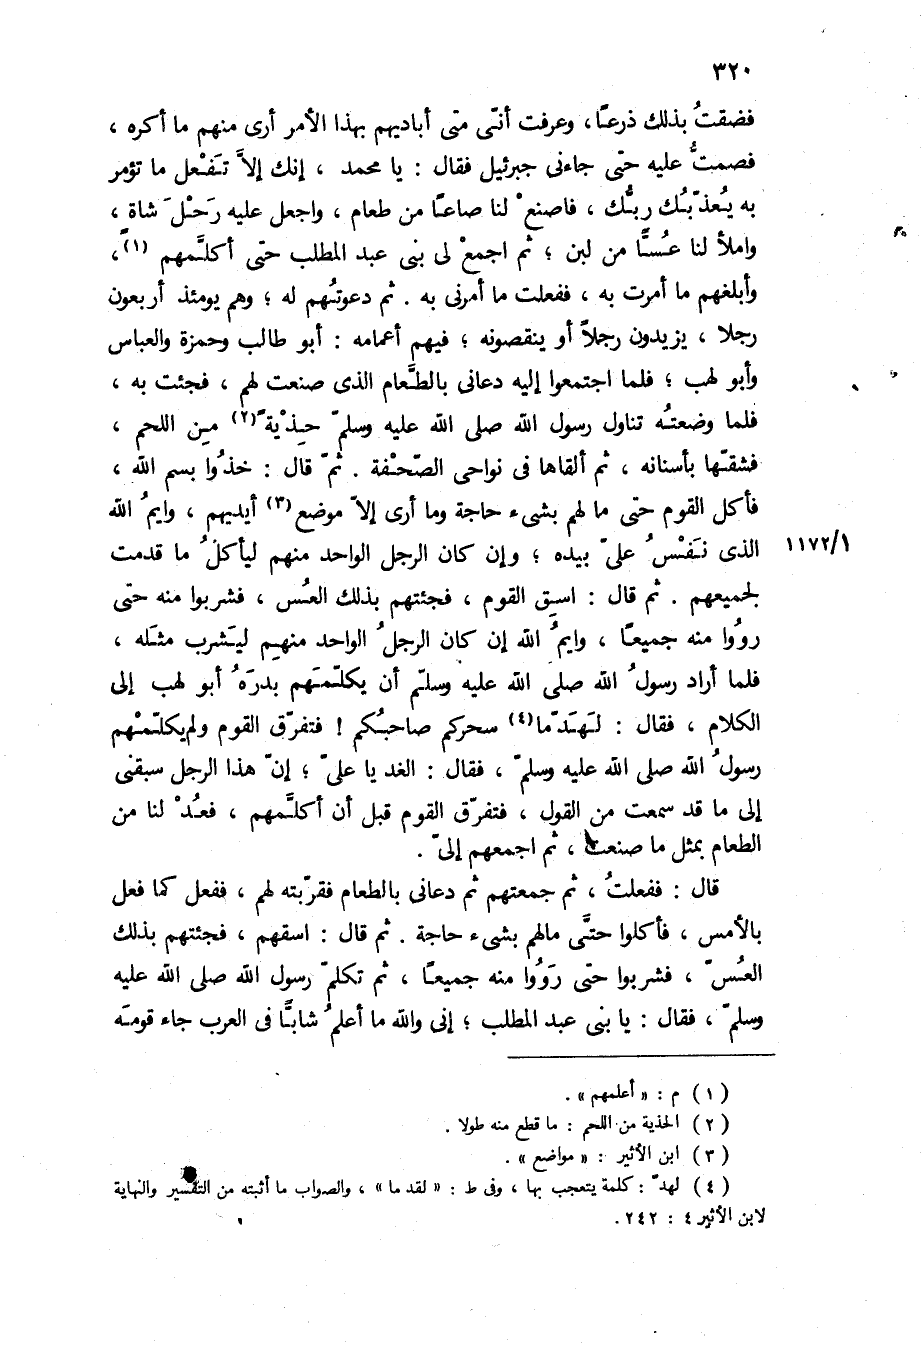 ٣٢٠
فضقتُ بذلك ذرعًا، وعرفت أنّى متى أباديهم بهذا الأمر أرى منهم ما أكره ،
فصمتُّ عليه حتى جاءنى جبرئيل فقال : يا محمد ، إنك إلاَّ تَفْعل ما تؤمر
به يُعذّبْك ربُّك ، فاصنعْ لنا صاعًا من طعام ، واجعل عليه رَحْلَ شاةٍ ،
واملأ لنا عُسًّا من لبن ؛ ثم اجمعْ لى بنى عبد المطلب حتى أكلَّمهم (١)،
وأبلغهم ما أمرت به ، ففعلت ما أمرنى به . ثم دعوتُهم له ؛ وهم يومئذ أربعون
رجلا ، يزيدون رجلاً أو ينقصونه ؛ فيهم أعمامه : أبو طالب وحمزة والعباس
وأبو لهب ؛ فلما اجتمعوا إليه دعانى بالطَّعام الذى صنعت لهم ، فجئت به ،
فلما وضعتُه تناول رسول الله صلى الله عليه وسلمّ حِذْيةً (٢) مِن اللحم ،
فشقّها بأسنانه ، ثم ألقاها فى نواحى الصّحْفة . ثمّ قال : خذُوا بسم الله ،
فأكل القوم حتى ما لهم بشىء حاجة وما أرى إلاّ موضع (٣) أيديهم ، وايمُ الله
الذى نَفْسُ علىّ بيده ؛ وإن كان الرجل الواحد منهم ليأكلُ ما قدمت
١١٧٢/١
لجميعهم . ثم قال : اسقِ القوم ، فجئتهم بذلك العُس ، فشربوا منه حتى
روُوا منه جميعًا ، وايمُ الله إن كان الرجلُ الواحد منهم ليَشرب مثلَه ،
فلما أراد رسولُ الله صلى الله عليه وسلّم أن يكلّمَهم بدرَهُ أبو لهب إلى
الكلام ، فقال : لَهَدّما (٤) سحركم صاحبُكم ! فتفرّق القوم ولم يكلّمْهم
رسولُ الله صلى الله عليه وسلمّ ، فقال : الغد يا علىّ ؛ إنّ هذا الرجل سبقنى
إلى ما قد سمعت من القول ، فتفرّق القوم قبل أن أكلَّمهم ، فعُدْ لنا من
الطعام بمثل ما صنعت ، ثم اجمعهم إلىّ .
قال : ففعلتُ ، ثم جمعتهم ثم دعانى بالطعام فقرّبته لهم ، ففعل كما فعل
بالأمس ، فأكلوا حتَّى مالهم بشىء حاجة . ثم قال : اسقهم ، فجئتهم بذلك
العُسّ ، فشربوا حتى رَوُوا منه جميعًا ، ثم تكلمّ رسول الله صلى الله عليه
وسلمّ ، فقال : يا بنى عبد المطلب ؛ إنى والله ما أعلمُ شابًّا فى العرب جاء قومَه
( ١ ) م : « أعلمهم » .
( ٢ ) الحذية من اللحم : ما قطع منه طولا .
( ٣ ) ابن الأثير : « مواضع » .
( ٤ ) لهدّ : كلمة يتعجب بها ، وفى ط : « لقد ما » ، والصواب ما أثبته من التفسير والنهاية
لابن الأثير ٤ : ٢٤٢ .